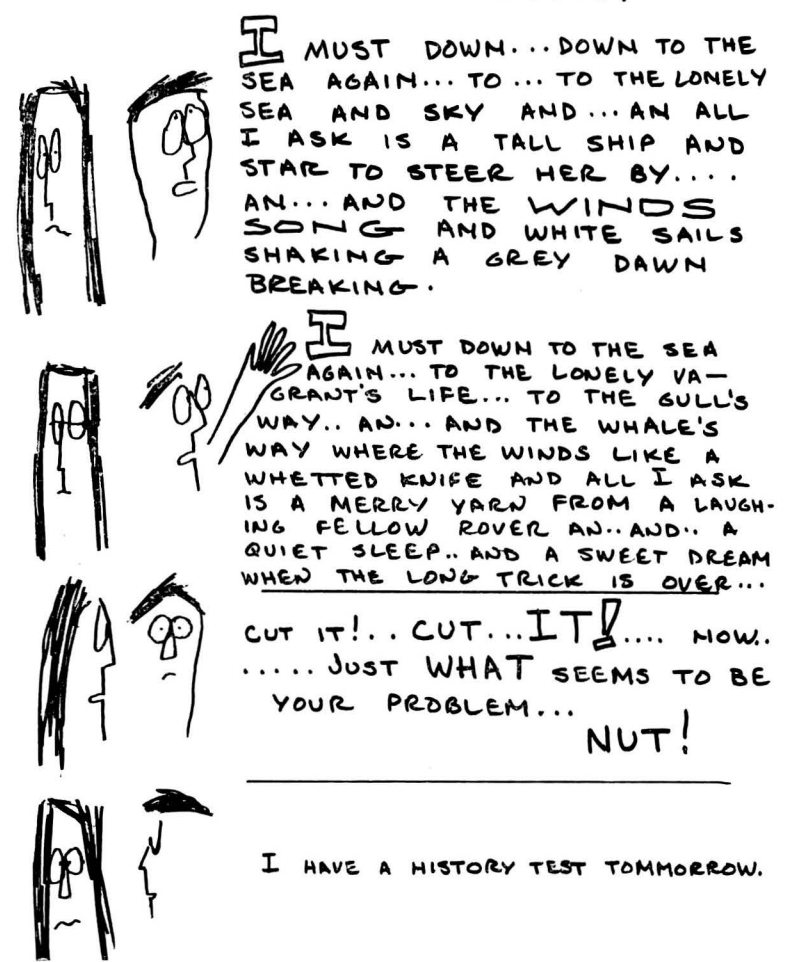 I MUST DOWN... DOWN TO THE
SEA AGAIN... TO ... TO THE LONELY
SEA AND SKY AND ... AN ALL
I ASK IS A TALL SHIP AND
STAR TO STEER HER BY....
AN... AND THE WINDS
SONG AND WHITE SAILS
SHAKING A GREY DAWN
BREAKING.
I MUST DOWN TO THE SEA
AGAIN... TO THE LONELY VA-
GRANT'S LIFE... TO THE GULL'S
WAY.. AN... AND THE WHALE'S
WAY WHERE THE WINDS LIKE A
WHETTED KNIFE AND ALL I ASK
IS A MERRY YARN FROM A LAUGH-
ING FELLOW ROVER AN.. AND.. A
QUIET SLEEP.. AND A SWEET DREAM
WHEN THE LONG TRICK IS OVER...
CUT IT!.. CUT...IT!.... NOW..
..... JUST WHAT SEEMS TO BE
YOUR PROBLEM...
NUT!
I HAVE A HISTORY TEST TOMMORROW.